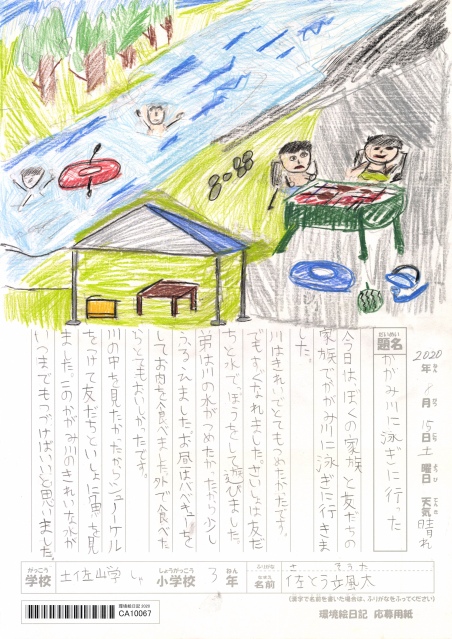 2020年 8月 15日 土曜日 天気 晴れ
ねん がつ にち ようび てんき
だいめい
題名
かがみ川に泳ぎに行った
今日は、ぼくの家族と友だちの
家族でかがみ川に泳ぎに行きま
した。
川はきれいでとてもつめたかたです。
でもすぐなれました。さいしょは友だ
ちと水でっぽうをして遊びました。
弟は川の水がつめたかったから少し
ふるえました。お昼はバーベキューを
してお肉を食べました。外で食べた
らとてもおいしかったです。
川の中を見たかたからシュノーケル
をつけて友だちといっしょに宙を見
ました。このかがみ川のきれいな水が
いつまでもつづけばいいと思いました。
がっこう
学校
土佐山学しゃ
しょうがっこう
小学校
3
ねん
年
ふりがな
なまえ
名前
佐とう 風大
(漢字で名前を書いた場合は、ふりがなをふってください)
環境絵日記 2020
CA10067
環境絵日記 応募用紙